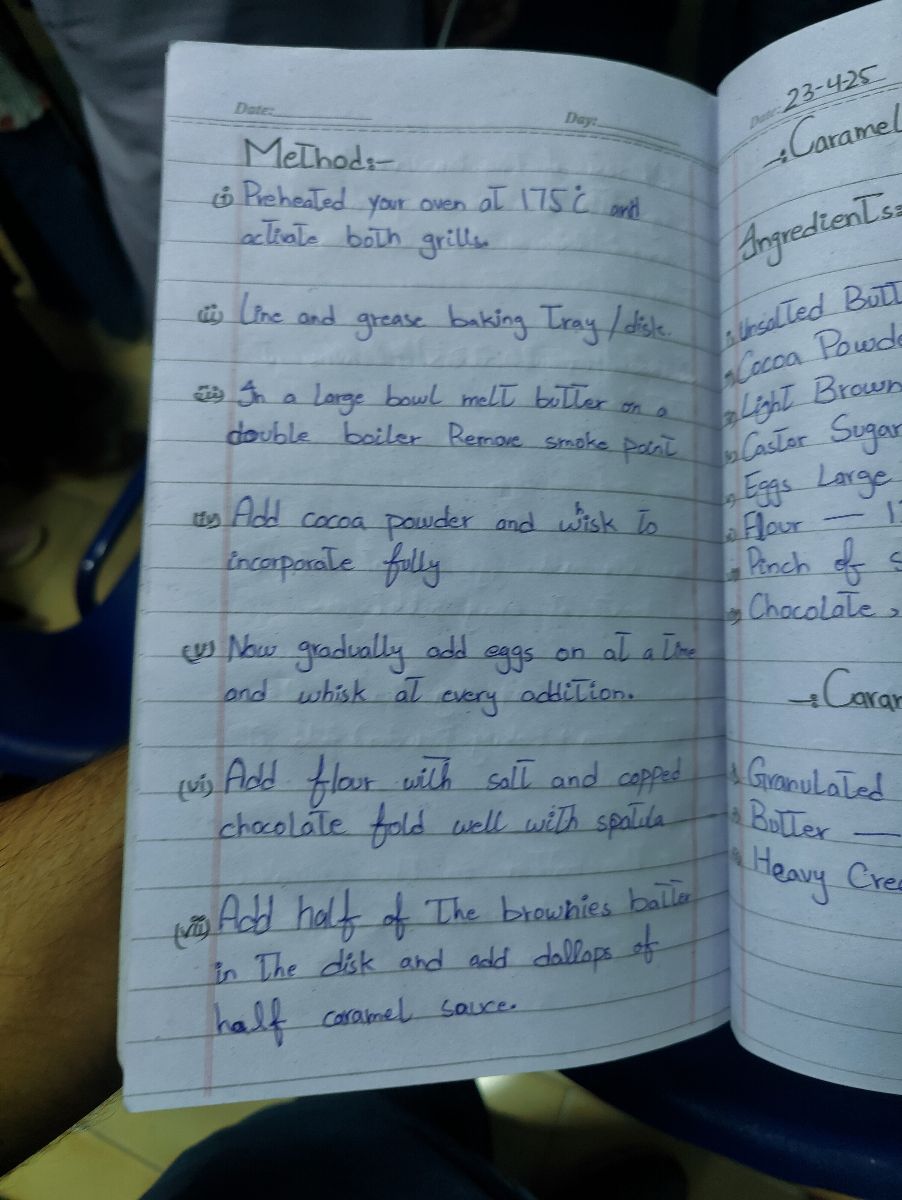 Date:
Day:
Method:-
(i) Preheated your oven at 175°C and
activate both grills.
(ii) Line and grease baking tray/disk.
(iii) In a large bowl melt butter on a
double boiler Remove smoke point
(iv) Add cocoa powder and whisk to
incorporate fully
(v) Now gradually add eggs on at a time
and whisk at every addition.
(vi) Add flour with salt and copped
chocolate fold well with spatula
(vii) Add half of the brownies batter
in the disk and add dallops of
half caramel sauce.
Date: 23-4-25
Caramel
Ingredients:
Unsalted Butt
Cocoa Powde
Light Brown
Castor Sugar
Eggs Large
Flour — 1
Pinch of s
Chocolate,
Caram
Granulated
Butter —
Heavy Crea